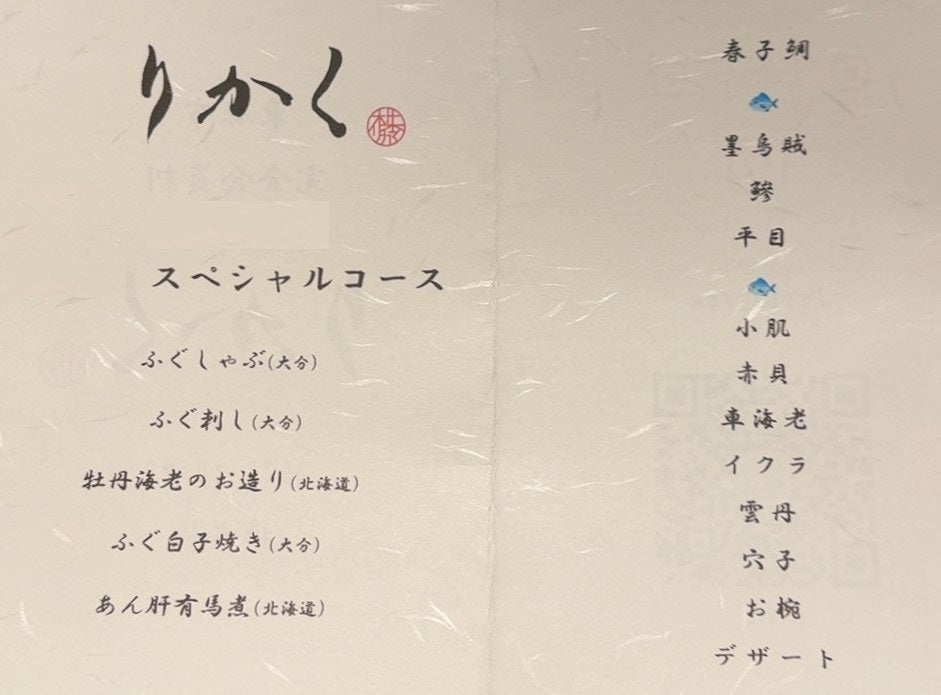 りかく
スペシャルコース
ふぐしゃぶ(大分)
ふぐ刺し(大分)
牡丹海老のお造り(北海道)
ふぐ白子焼き(大分)
あん肝有馬煮(北海道)
春子鯛
墨烏賊
鰺
平目
小肌
赤貝
車海老
イクラ
雲丹
穴子
お椀
デザート